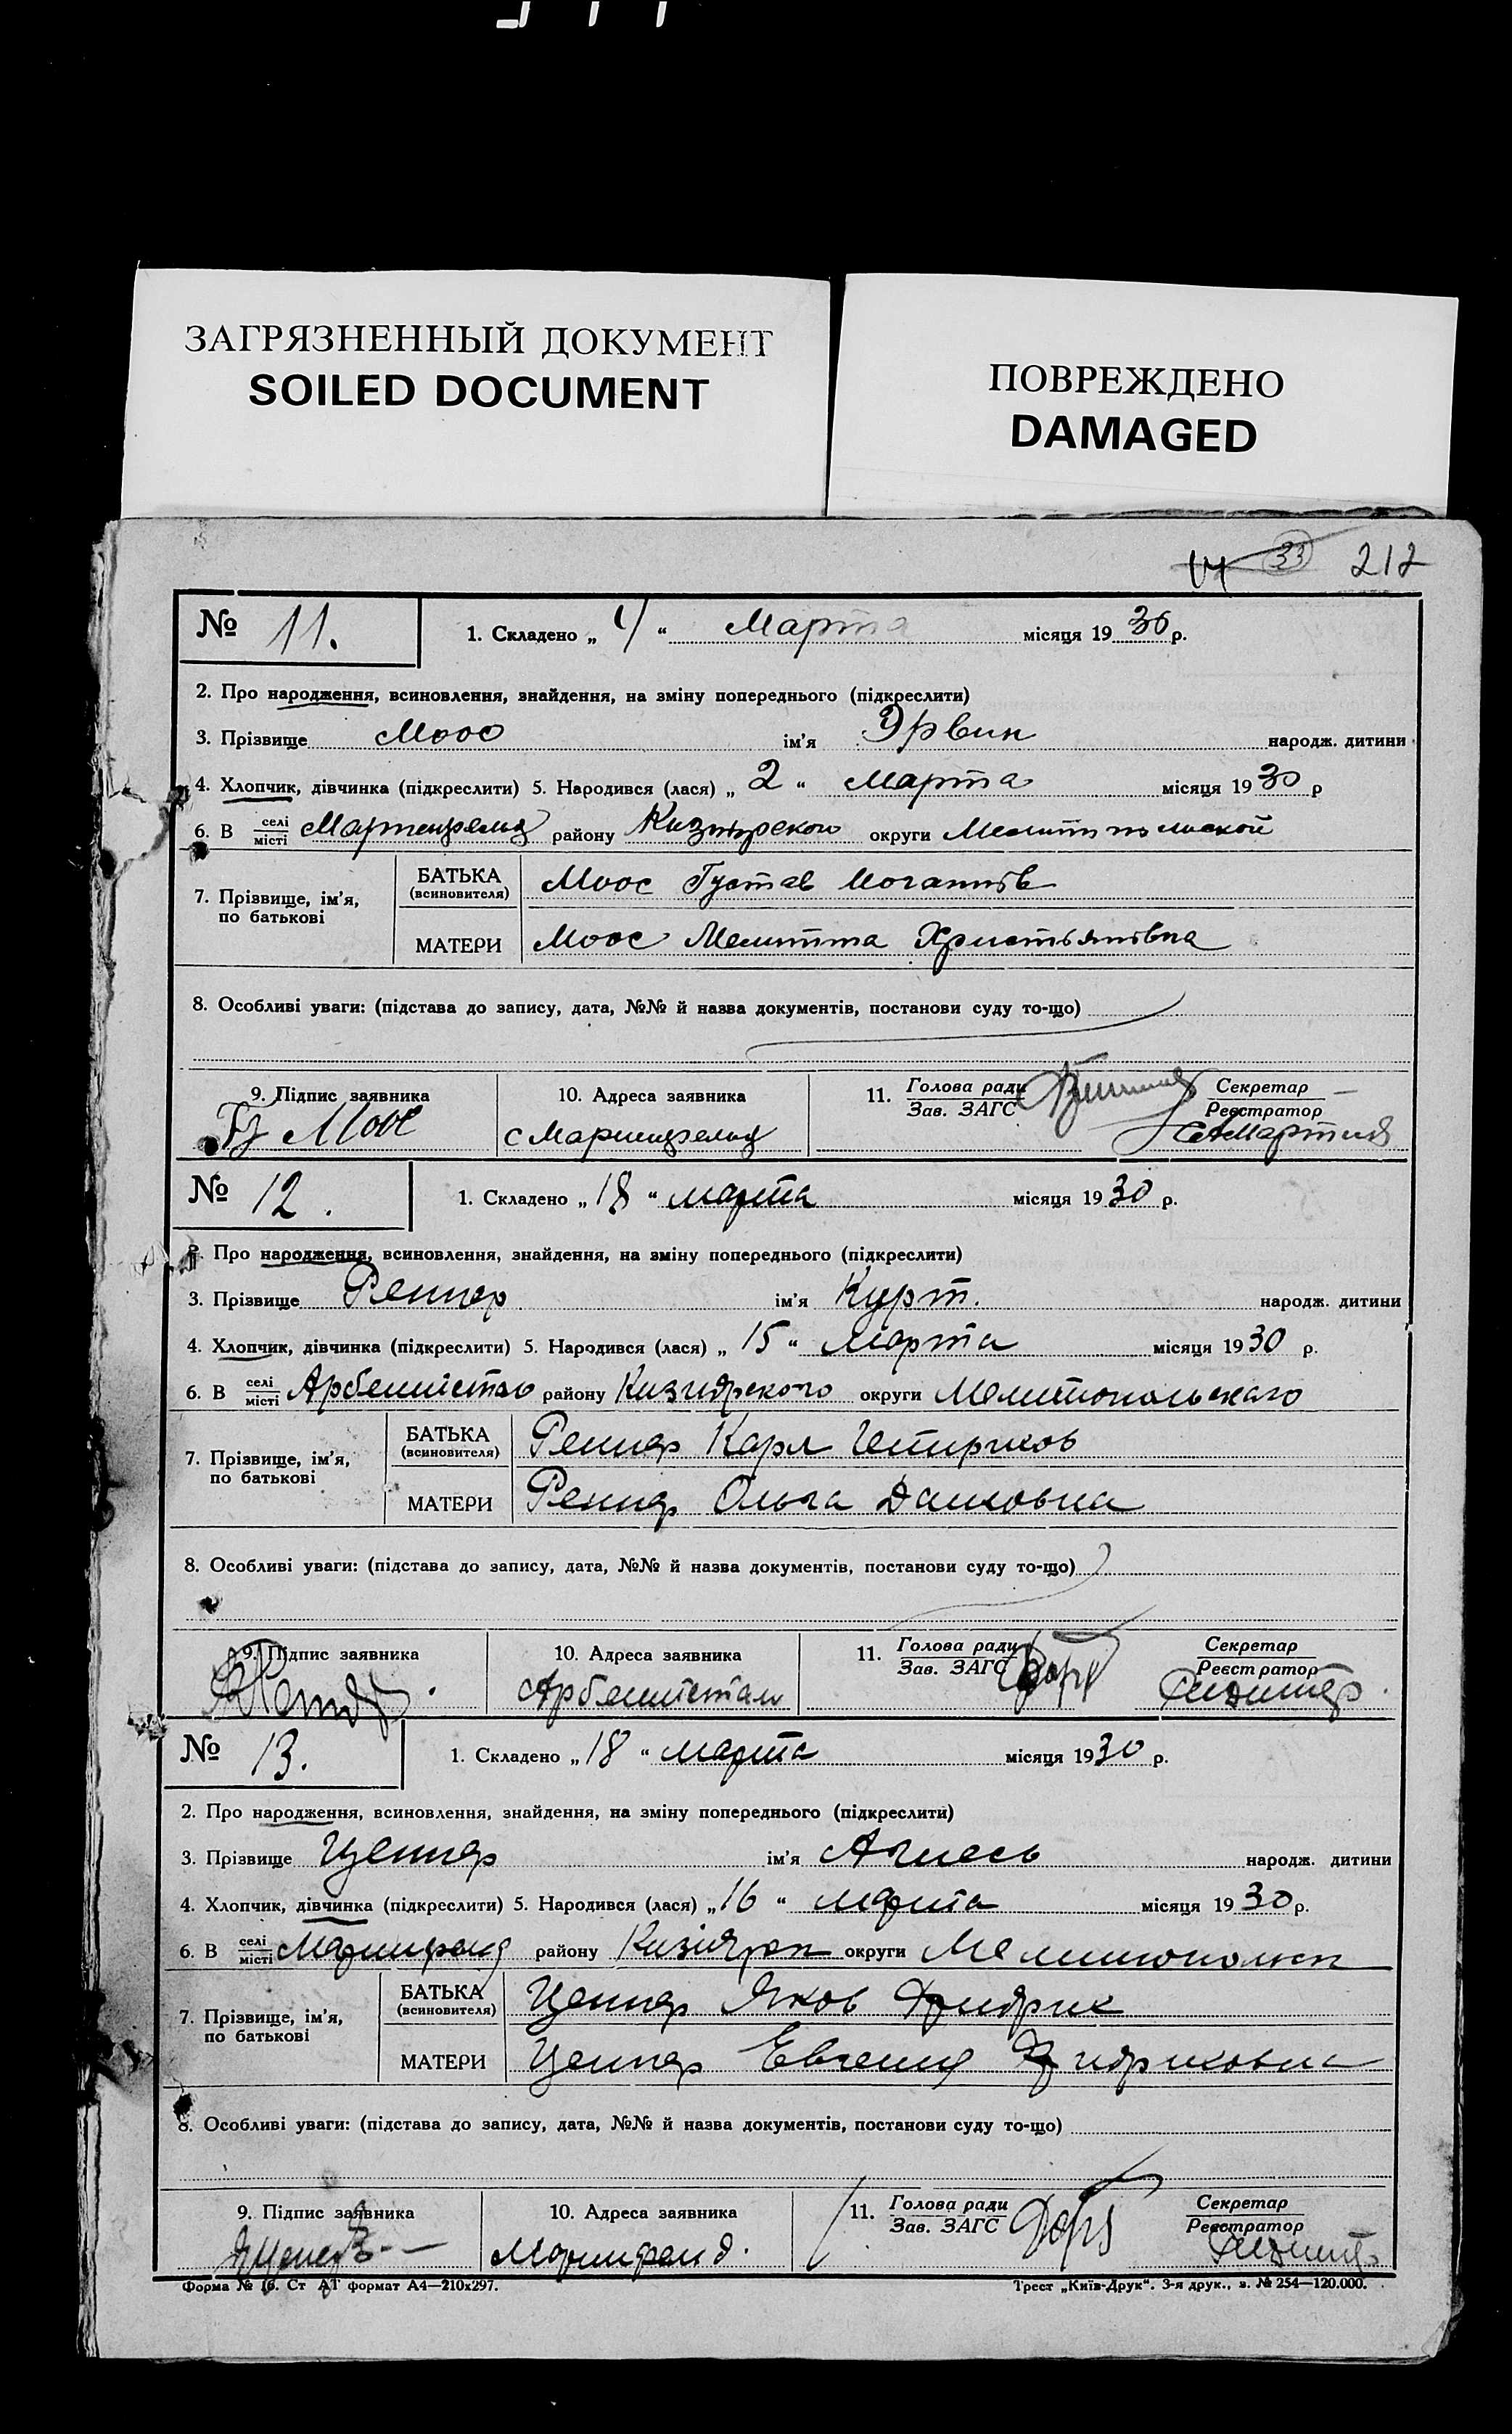 ЗАГРЯЗНЕННЫЙ ДОКУМЕНТ
SOILED DOCUMENT
ПОВРЕЖДЕНО
DAMAGED
33 212
№ 11. 1. Складено „ 4 “ Марта місяця 1930 р.
2. Про народження, всиновлення, знайдення, на зміну попереднього (підкреслити)
3. Прізвище Моос ім'я Эрвин народж. дитини
4. Хлопчик, дівчинка (підкреслити) 5. Народився (лася) „ 2 “ Марта місяця 1930 р
6. В селі місті району округи
7. Прізвище, ім'я, по батькові
БАТЬКА (всиновителя) Моос Густав
МАТЕРИ Моос Мелитта Христьянівна
8. Особливі уваги: (підстава до запису, дата, №№ й назва документів, постанови суду то-що)
9. Підпис заявника 10. Адреса заявника 11. Голова ради Зав. ЗАГС Секретар Реєстратор
Моос с
№ 12. 1. Складено „ 18 “ марта місяця 1930 р.
2. Про народження, всиновлення, знайдення, на зміну попереднього (підкреслити)
3. Прізвище Реннер ім'я Курт. народж. дитини
4. Хлопчик, дівчинка (підкреслити) 5. Народився (лася) „ 15 “ Марта місяця 1930 р.
6. В селі місті району Кизиярского округи Мелитопольскаго
7. Прізвище, ім'я, по батькові
БАТЬКА (всиновителя) Реннер Карл
МАТЕРИ Реннер Ольга
8. Особливі уваги: (підстава до запису, дата, №№ й назва документів, постанови суду то-що)
9. Підпис заявника 10. Адреса заявника 11. Голова ради Зав. ЗАГС Секретар Реєстратор
№ 13. 1. Складено „ 18 “ марта місяця 1930 р.
2. Про народження, всиновлення, знайдення, на зміну попереднього (підкреслити)
3. Прізвище Ценнер ім'я Агнесь народж. дитини
4. Хлопчик, дівчинка (підкреслити) 5. Народився (лася) „ 16 “ марта місяця 1930 р.
6. В селі місті району округи
7. Прізвище, ім'я, по батькові
БАТЬКА (всиновителя) Ценнер Яков
МАТЕРИ Ценнер Евгения
8. Особливі уваги: (підстава до запису, дата, №№ й назва документів, постанови суду то-що)
9. Підпис заявника 10. Адреса заявника 11. Голова ради Зав. ЗАГС Секретар Реєстратор
Форма № 1б. Ст АТ формат А4—210x297. Трест „Київ-Друк“. 3-я друк., з. № 254—120.000.